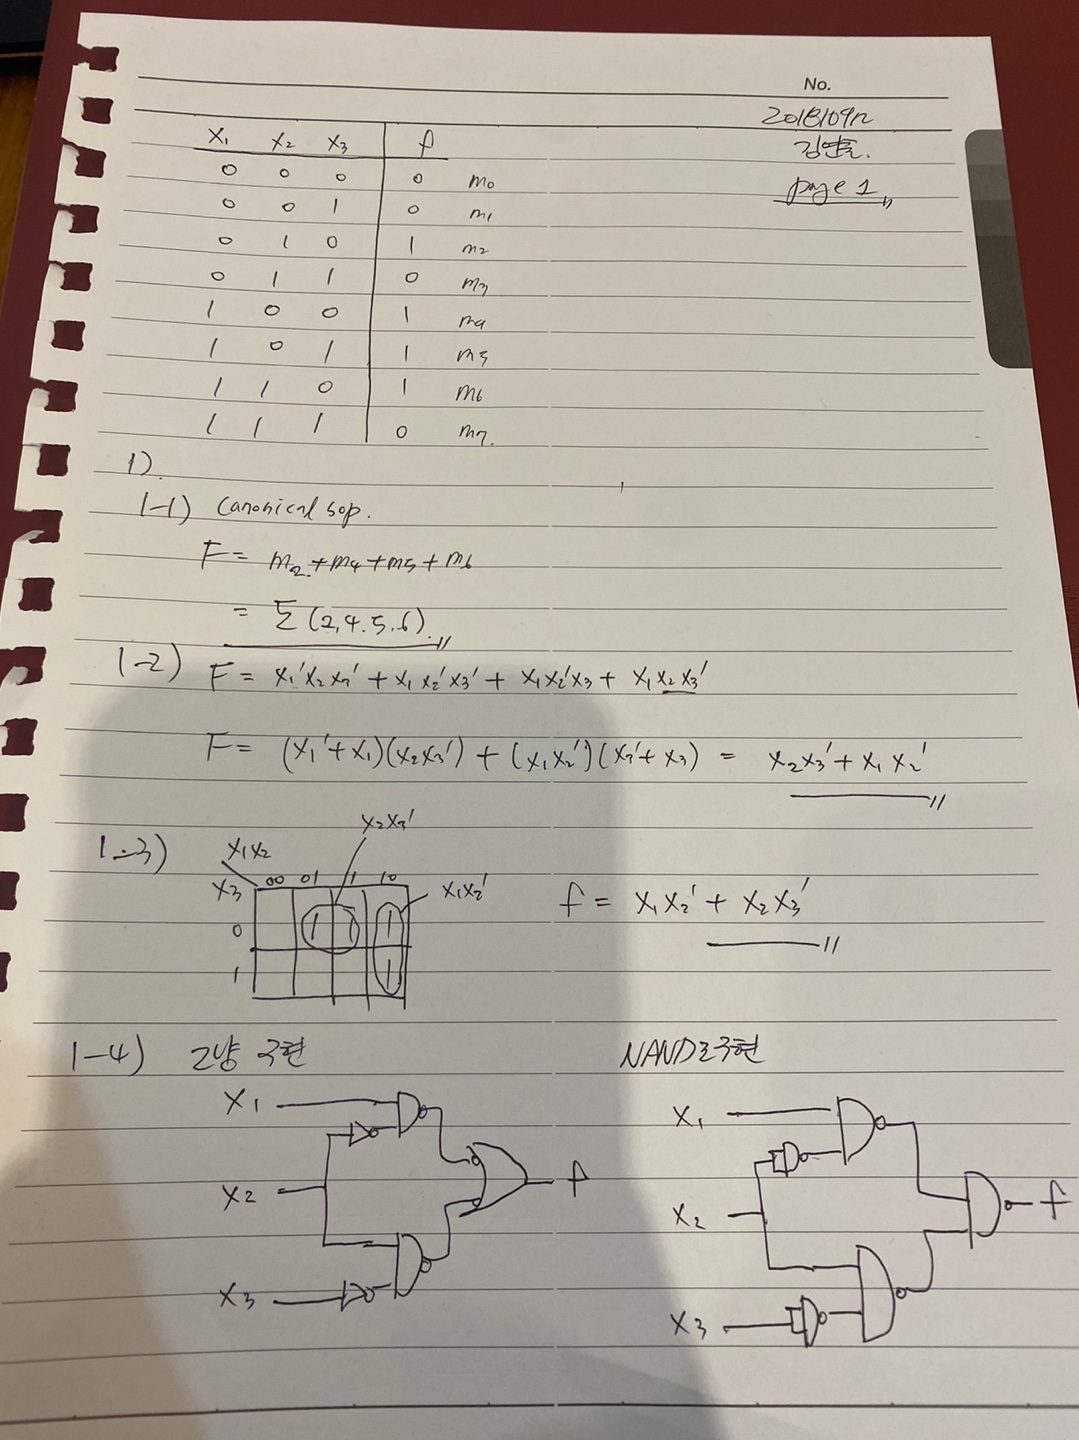 No.
page 1
X₁ X₂ X₃ f
0 0 0 0 m₀
0 0 1 0 m₁
0 1 0 1 m₂
0 1 1 0 m₃
1 0 0 1 m₄
1 0 1 1 m₅
1 1 0 1 m₆
1 1 1 0 m₇.
1).
1-1) Canonical sop.
F = m₂ + m₄ + m₅ + m₆
= Σ (2,4.5.6).
1-2) F = X₁'X₂X₃' + X₁X₂'X₃' + X₁X₂'X₃ + X₁X₂X₃'
F = (X₁'+X₁)(X₂X₃') + (X₁X₂')(X₃'+X₃) = X₂X₃' + X₁X₂'
1-3) X₁X₂ X₂X₃'
X₃ 00 01 11 10 X₁X₂' f = X₁X₂' + X₂X₃'
0 1 1 1
1 1
1-4) 그냥 구현 NAND로구현
X₁ X₁
X₂ f X₂ f
X₃ X₃